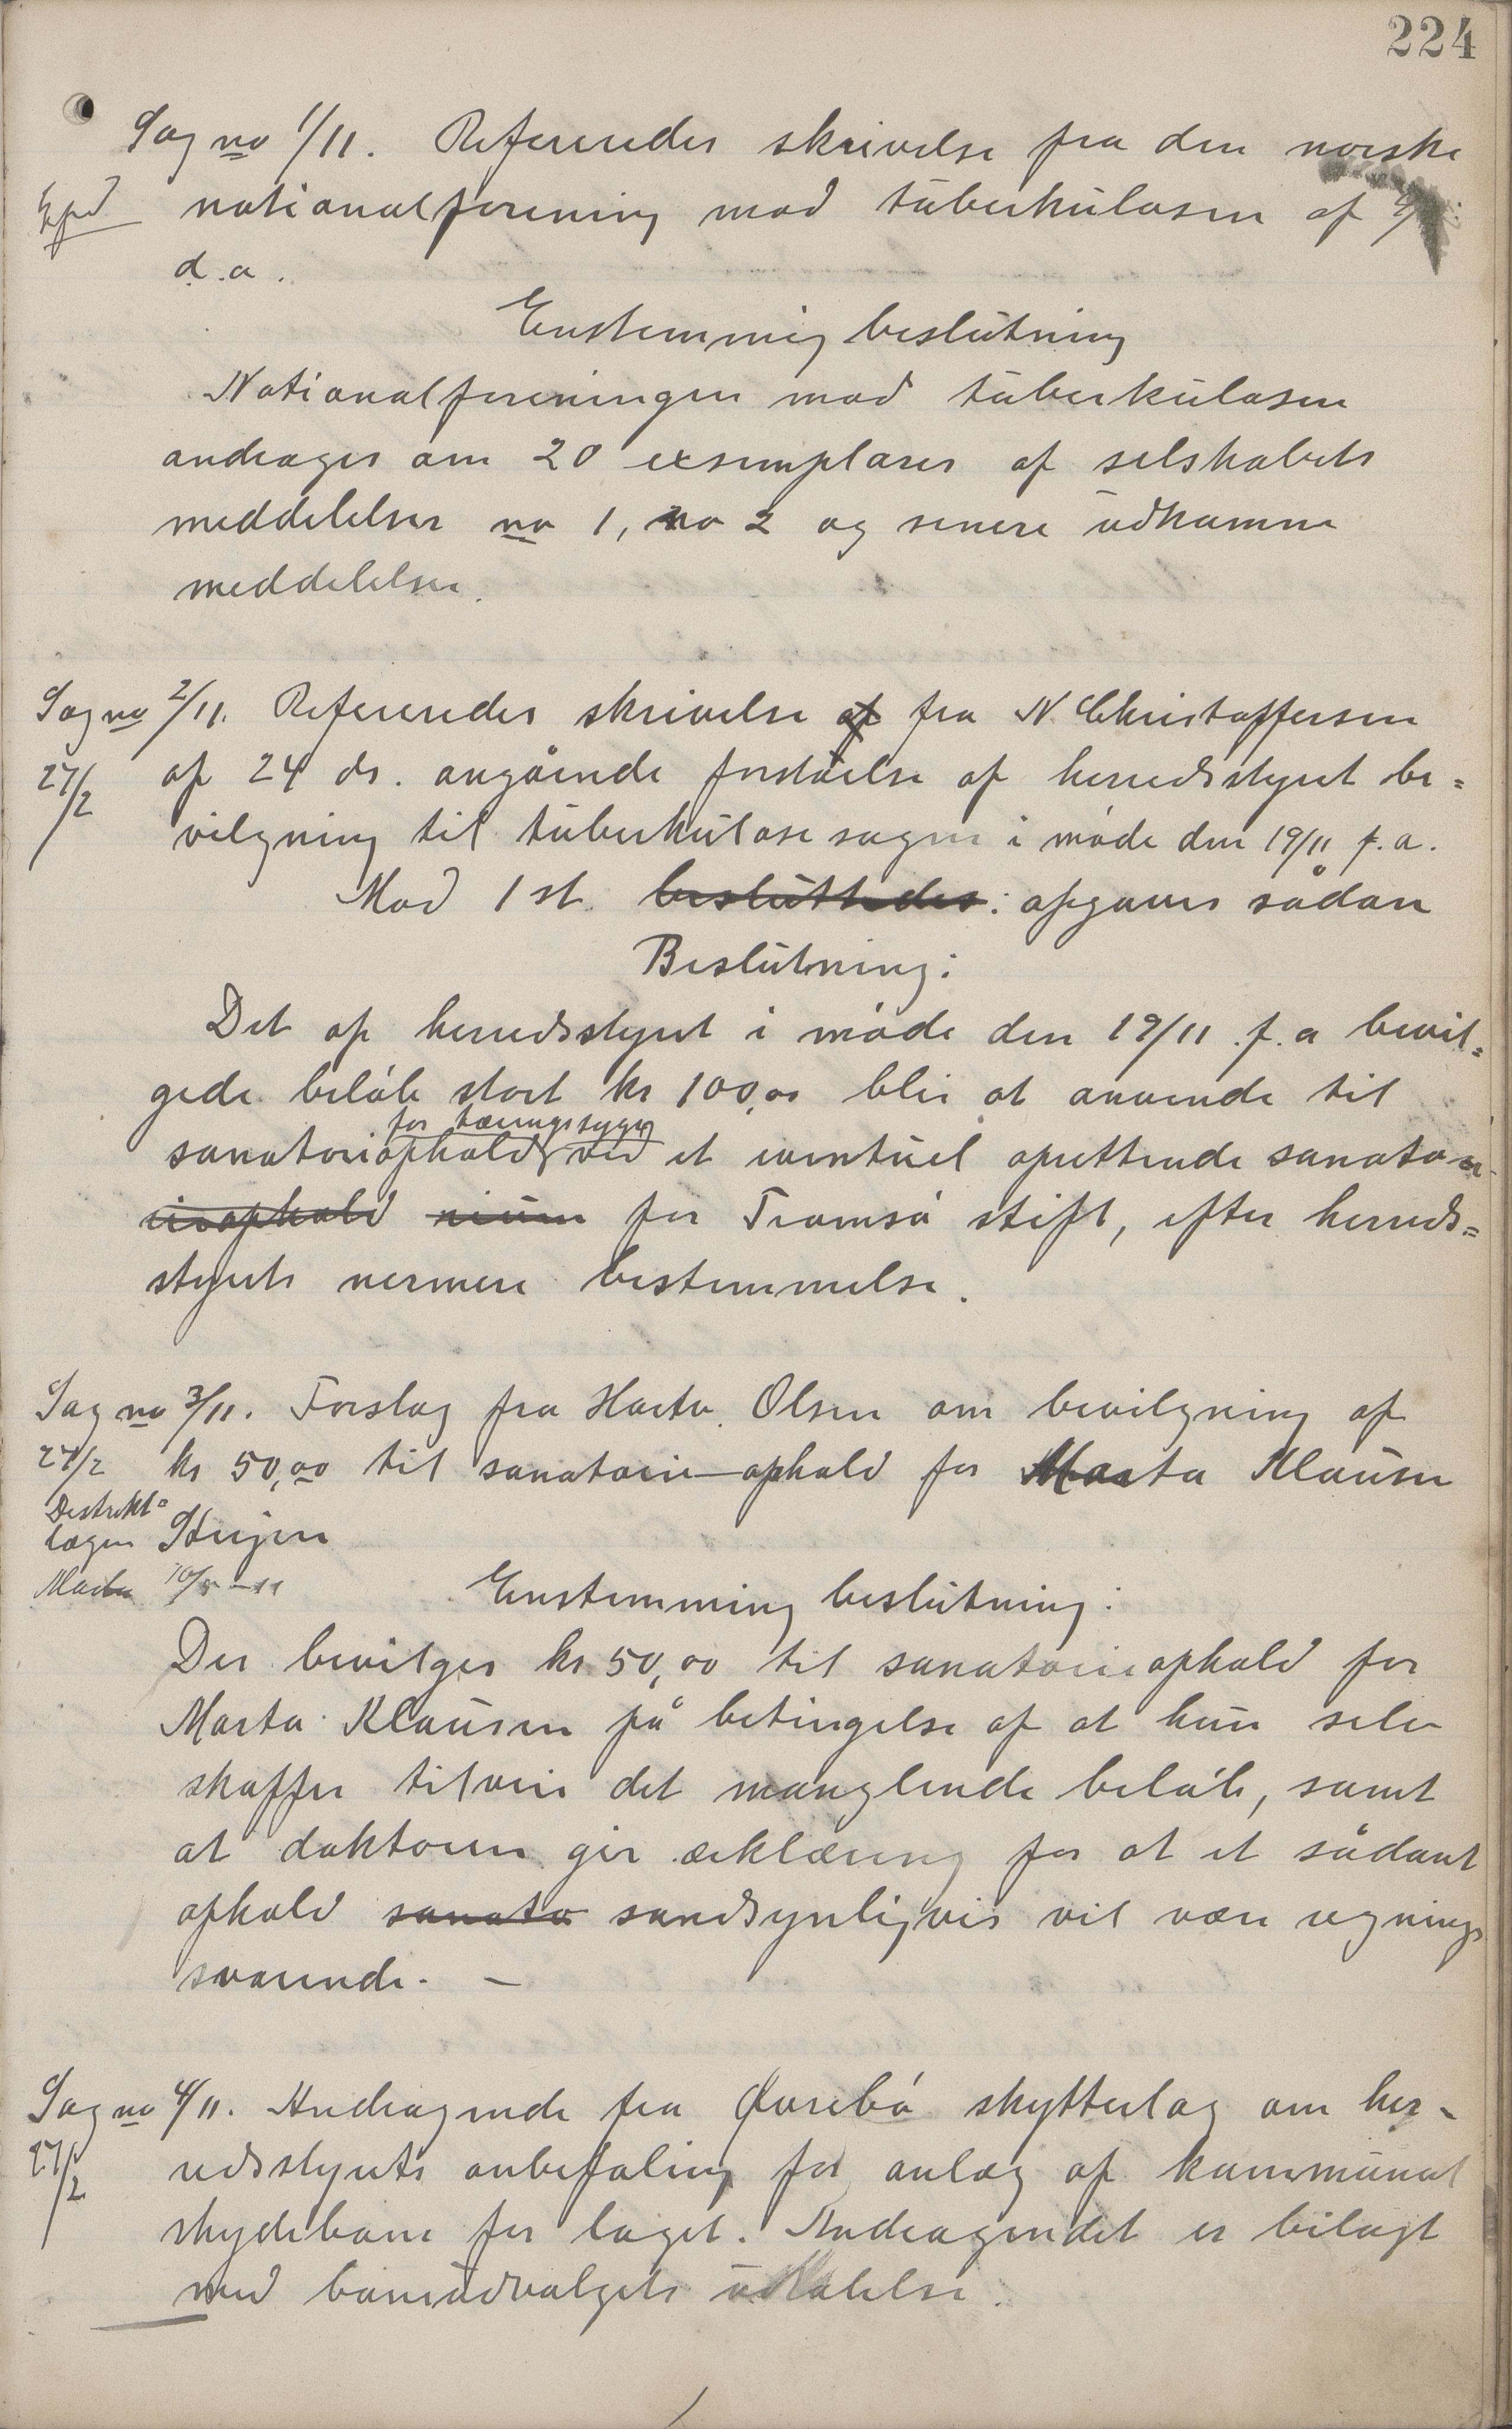 224
Sag no 1/11. Refereredes skrivelse fra den norske
Epd nationalforening mod tuberkulosen af
d.a.
Enstemmig beslutning
Nationalforeningen mod tuberkulosen
andrages om 20 exsemplarer af selskabets
meddelelser no 1, no 2 og senere udkomne
meddelelser.
Sag no 2/11. Refereredes skrivelse af fra N. Christoffersen
27/2 af 24 ds. angående forståelse af herredsstyret be=
vilgning til tuberkulose sagen i møde den 19/11 f.a.
Mod 1 st. besluttedes: afgaves sådan
Beslutning:
Det af herredsstyret i møde den 19/11 f.a bevil=
gede beløb stort kr 100,00 blir at anvende til
for tæringssyge
sanatorieophold ved et eventuel oprettende sanato-
rieophold rium for Tromsø stift, efter herreds=
styrets nermere bestemmelse.
Sag no 3/11. Forslag fra Hartv. Olsen om bevilgning af
27/2 kr 50,00 til sanatorie-ophold for Marta Klausen
Destrikts=
lægen Steigen
Marta 10/5 - 11
Enstemming beslutning:
Der bevilges kr. 50,00 til sanatorieophold for
Marta Klausen på betingelse af at hun selv
skaffer tilveie det manglende beløb, samt
at doktoren gir ærklæring for at et sådant
ophold sanato sandsynligvis vil være regnings
svarende. -
Sag no 4/11. Andragende fra Øvsebø skytterlag om her-
27/2 redsstyrets anbefaling for anlæg af kommunal
skydebane for laget. Andragendet er bilagt
med baneudvalgets udtalelse.